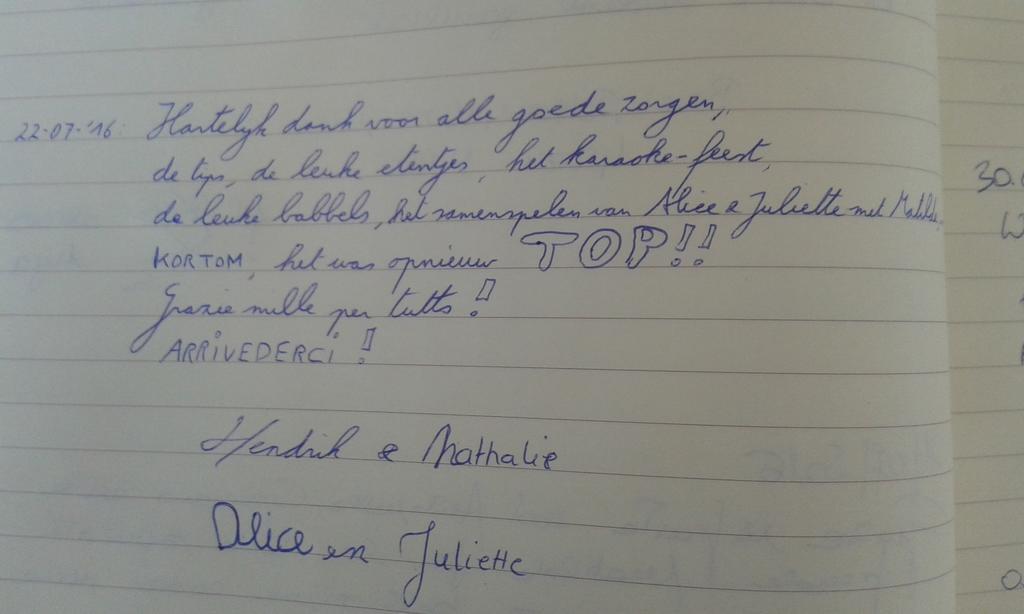 22-07-'16: Hartelijk dank voor alle goede zorgen,
de tips, de leuke etentjes, het karaoke-feest,
de leuke babbels, het samenspelen van Alice & Juliette met Matilde.
KORTOM, het was opnieuw TOP!!
Grazie mille per tutto!
ARRIVEDERCI!
Hendrik & Nathalie
Alice en Juliette
30.